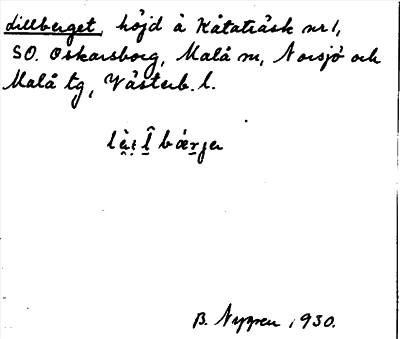 Lillberget, höjd å Kåtaträsk nr 1,
SO. Oskarsborg, Malå sn, Norsjö och
Malå tg, Västerb. l.
B. Nygren, 1930.